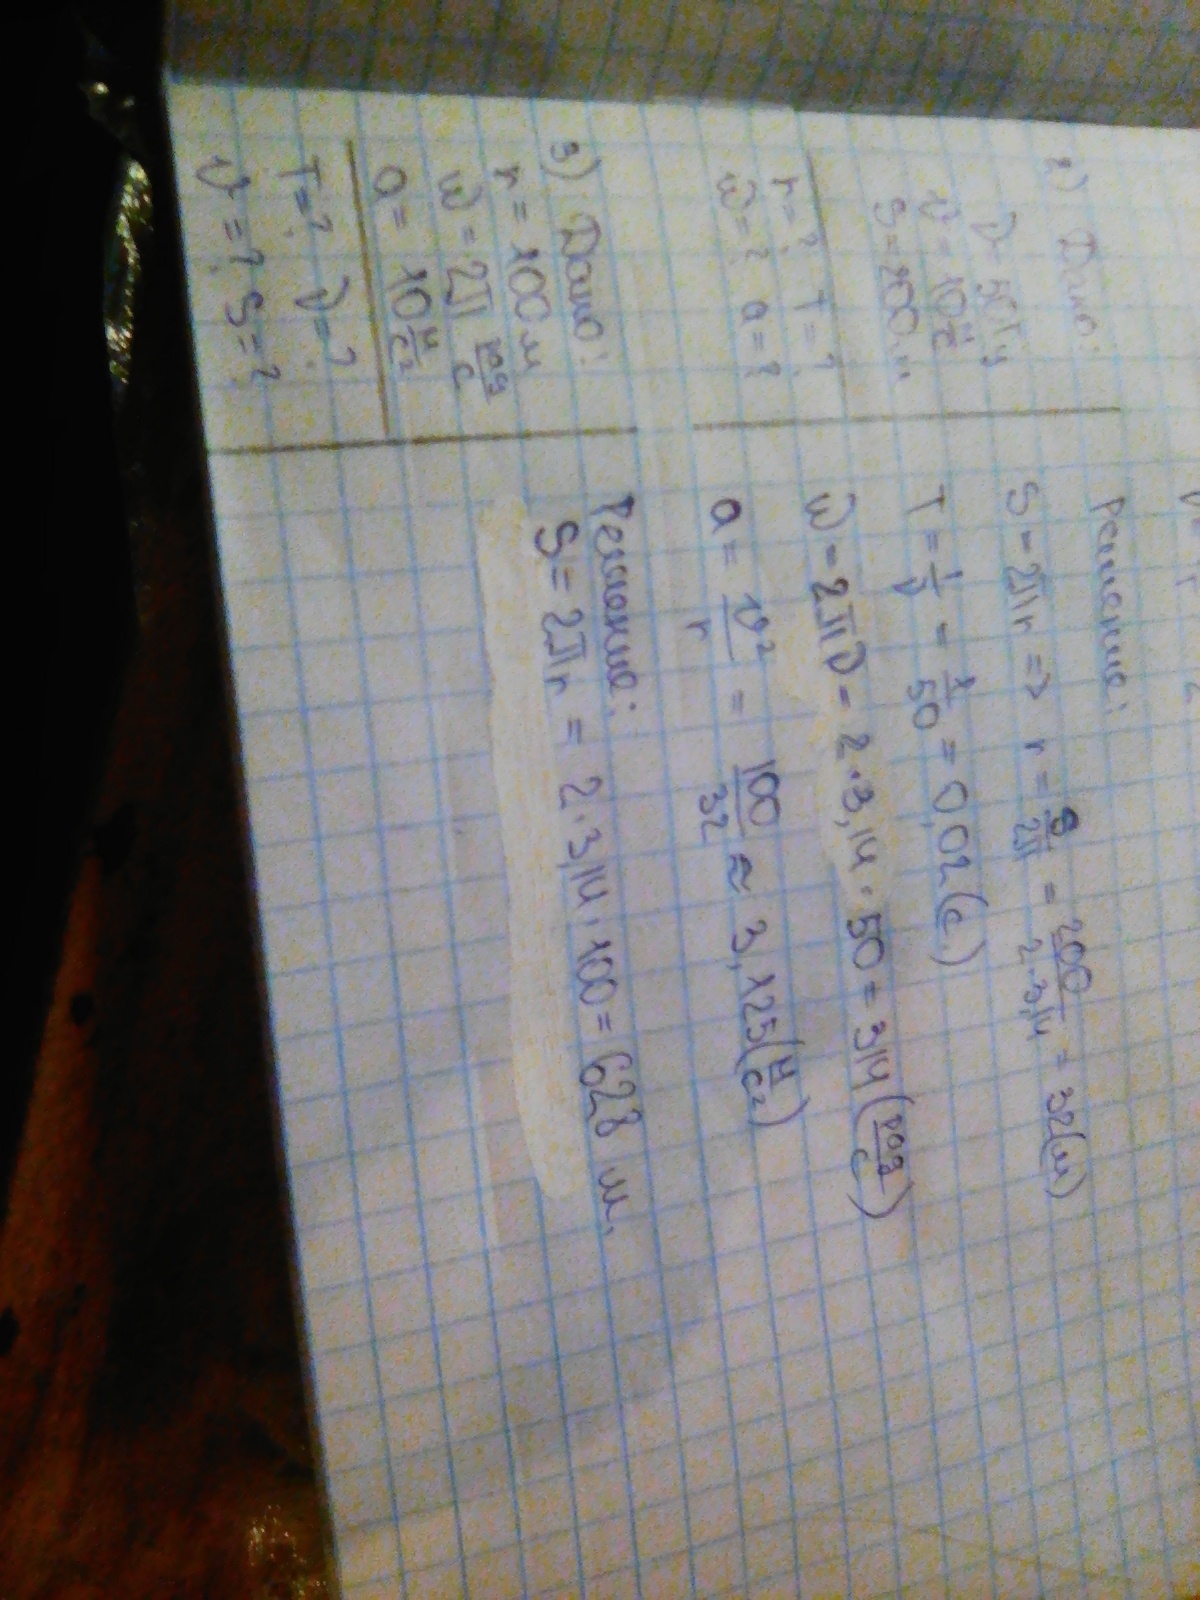 2) Дано:
ν = 50 Гц
v = 10 м/с
S = 200 м
r = ? T = ?
ω = ? a = ?
Решение:
S = 2πr => r = S/2π = 200/2·3,14 = 32(м)
T = 1/ν = 1/50 = 0,02(с.)
ω = 2πν = 2·3,14·50 = 314(рад/с)
a = v²/r = 100/32 ≈ 3,125(м/с²)
3) Дано:
r = 100 м
ω = 2π рад/с
a = 10 м/с²
T = ? ν = ?
v = ? S = ?
Решение:
S = 2πr = 2·3,14·100 = 628 м.